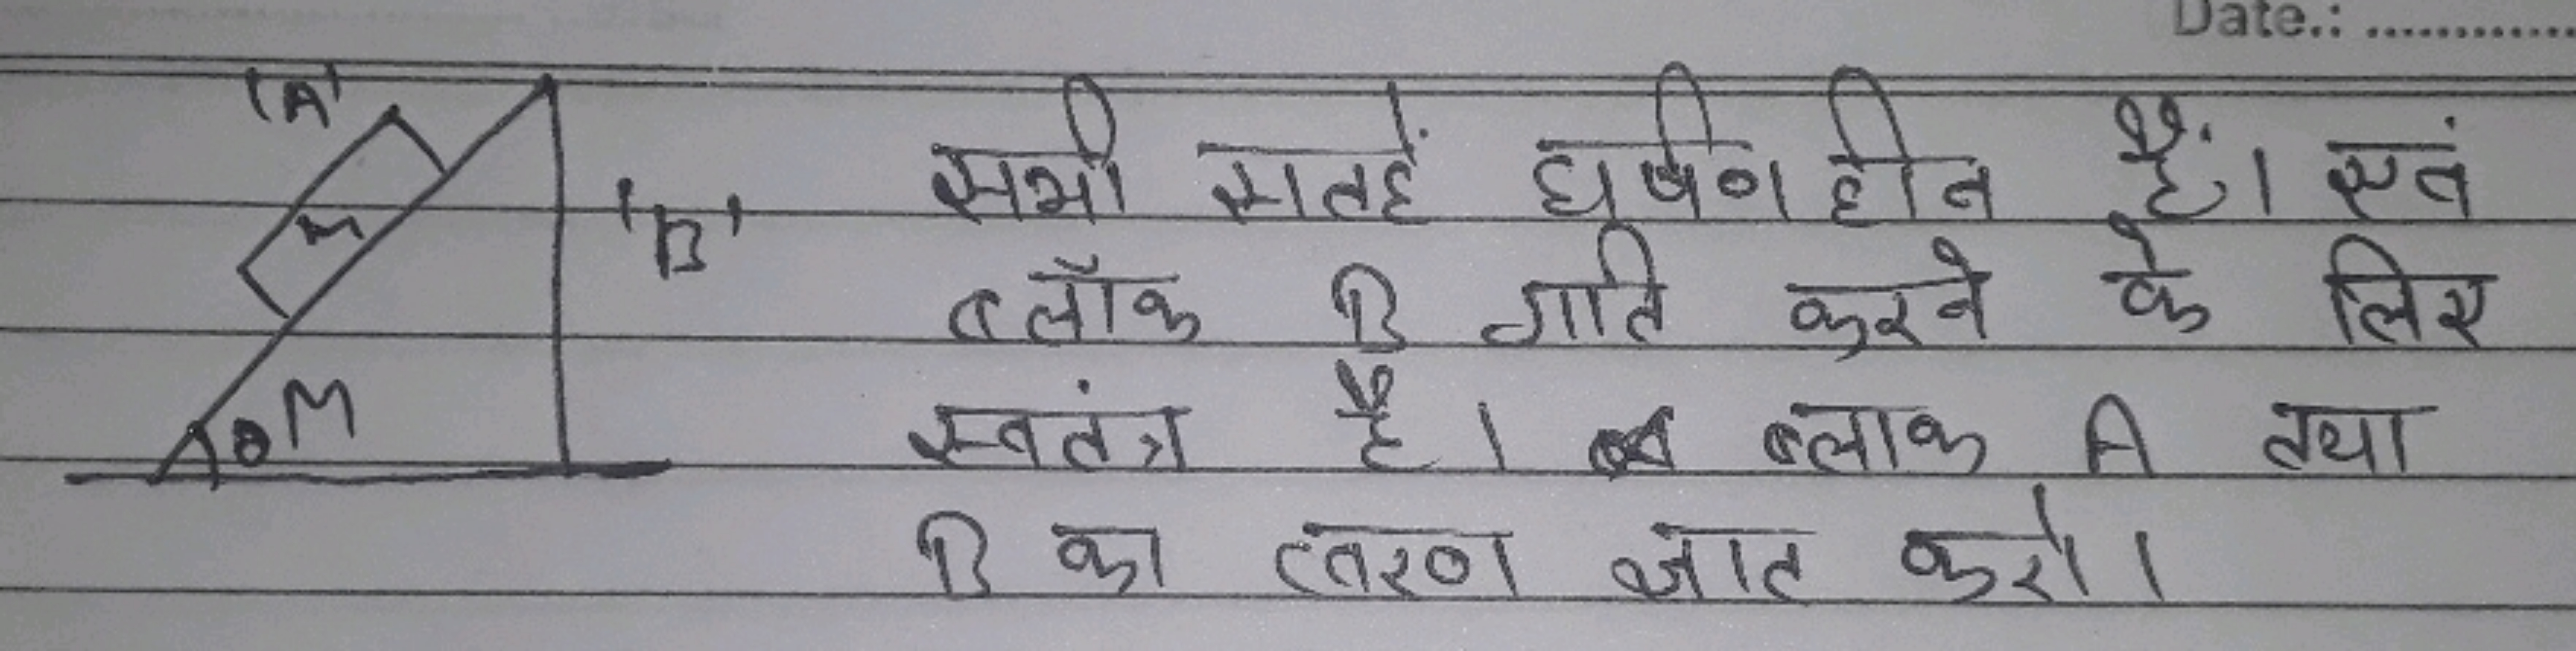 Date.: ............
'A'
m
'B'
θ M
सभी सतहें घर्षण हीन हैं। एवं
ब्लॉक B गति करने के लिए
स्वतंत्र है। ब्लाक A तथा
B का त्वरण ज्ञात करो।